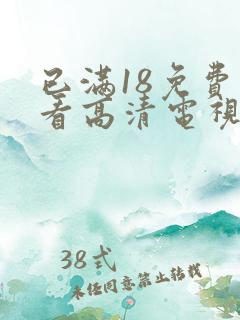 已满18免费
看高清電視
38式
未经同意禁止转载